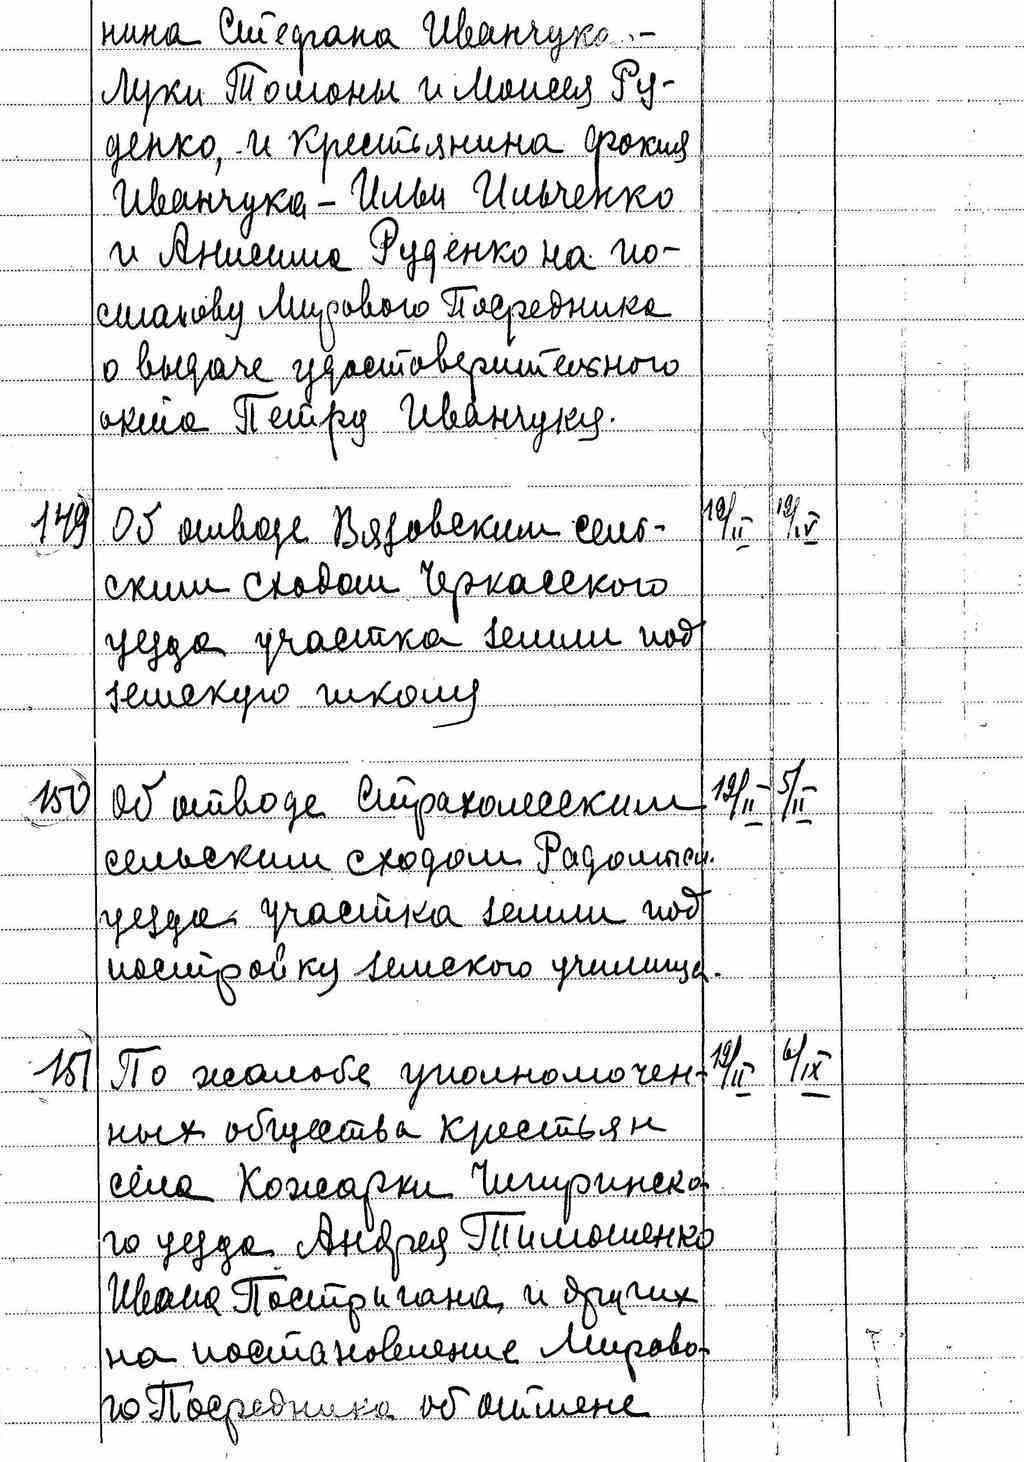 нина Стефана Иванчука -
Луки Томоны и Моисея Ру-
денко, и крестьянина Фокия
Иванчука - Ильи Ильченко
и Анисима Руденко на по-
станову Мирового Посредника
о выдаче удостоверительного
акта Петру Иванчуку.
149 Об отводе Вязовским сель- 19/II 19/IV
ским сходом Черкасского
уезда участка земли под
земскую школу
150 Об отводе Страхолесским 19/II 5/II
сельским сходом Радомысл.
уезда участка земли под
постройку земского училища.
151 По жалобе уполномочен- 19/II 6/IX
ных общества крестьян
села Кожарки Чигиринско-
го уезда Андрея Тимошенко
Ивана Постригана и других
на постановление Мирово-
го Посредника об отмене